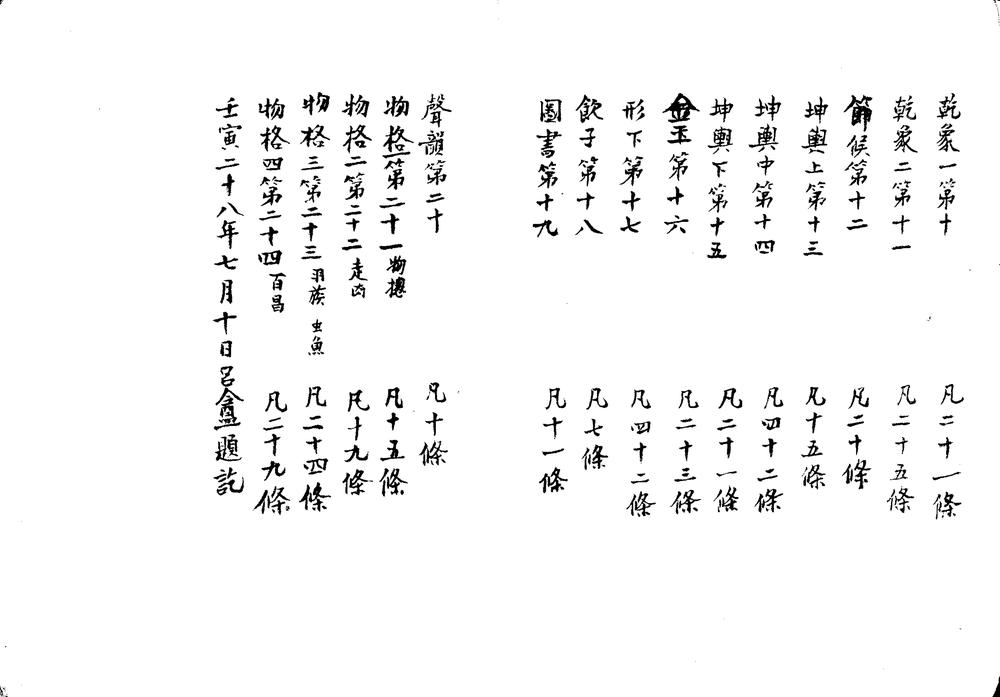 乾象一第十 凡二十一條
乾象二第十一 凡二十五條
節候第十二 凡二十條
坤輿上第十三 凡十五條
坤輿中第十四 凡四十二條
坤輿下第十五 凡二十一條
金玉第十六 凡二十三條
形下第十七 凡四十二條
飲子第十八 凡七條
圖書第十九 凡十一條
聲韻第二十 凡十條
物格一第二十一 物摠 凡十五條
物格二第二十二 走 凡十九條
物格三第二十三 羽族 虫魚 凡二十四條
物格四第二十四 百昌 凡二十九條
壬寅二十八年七月十日呂盦題訖